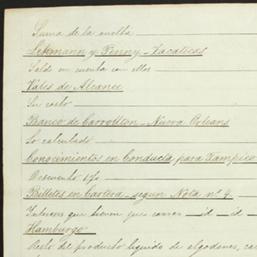 Suma de la vuelta
Lehmann y Penny - Zacatecas
Saldo en cuenta con ellos
Vales de Alcance
Su costo
Banco de Carrollton - Nueva Orleans
Lo calculado
Conocimientos en Conducta para Tampico
Descuento 1%
Billetes en Cartera, segun Nota nº 9
Intereses que tienen que correr id id
Hamburgo
Resto del producto liquido de algodones,